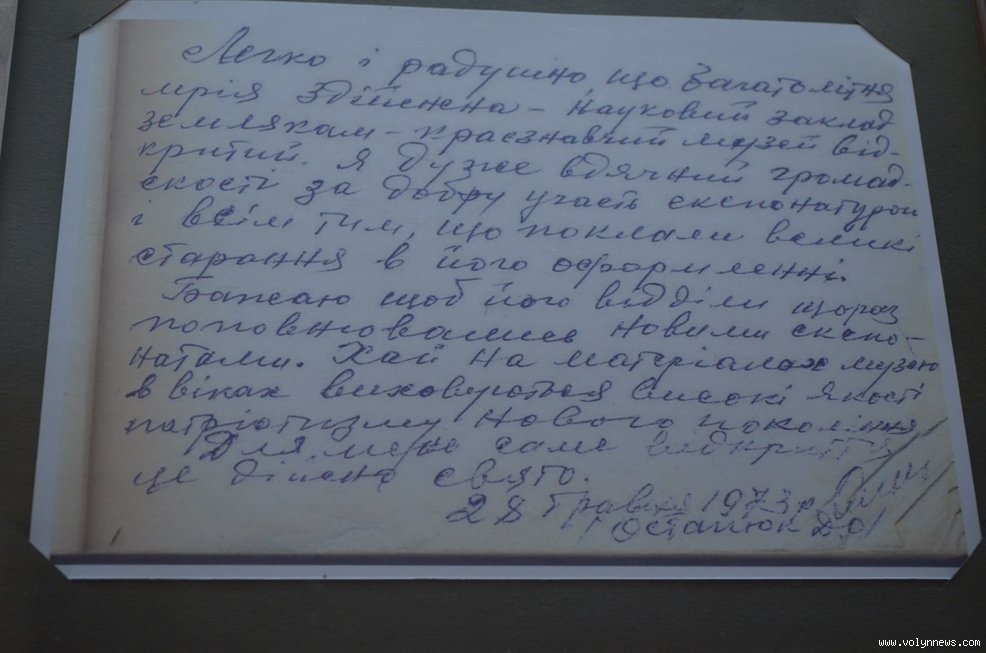 Легко і радушно що багатолітня
мрія здійснена - науковий заклад
землякам - краєзнавчий музей від-
критий. Я дуже вдячний громад-
скості за добру участь експонатурою
і всім тим, що поклали великі
старання в його оформленні.
Бажаю щоб його відділи щораз
поповнювались новими експо-
натами. Хай на матеріалах музею
в віках виховуються високі якості
патріотизму нового покоління
Для мене саме відкриття
це дійсно свято.
28 травня 1973 р.
/Остапюк Д.О/
www.volynnews.com